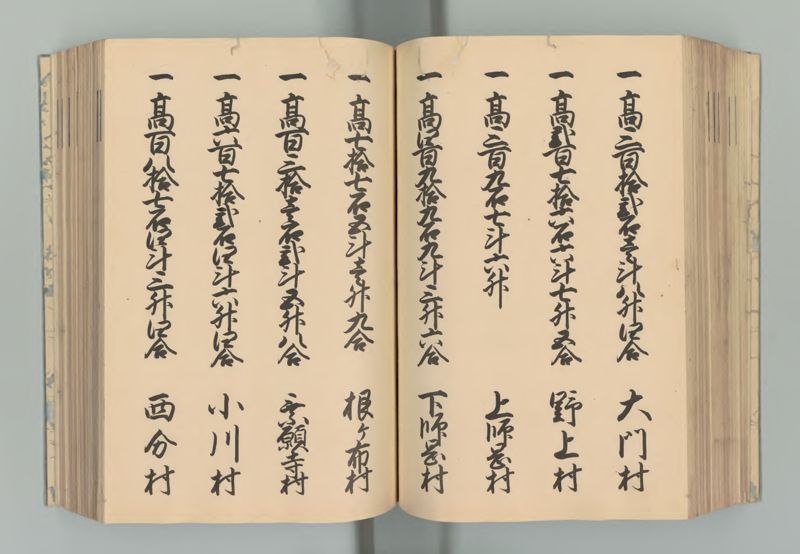 一 高三百拾弐石壱斗八升四合 大門村
一 高弐百七拾六石六斗七升五合 野上村
一 高三百九石七斗六升 上師岡村
一 高四百九拾九石九斗三升六合 下師岡村
一 高七拾七石五斗壱升九合 根ヶ布村
一 高百三拾壱石弐斗五升八合 乗願寺村
一 高六百七拾弐石四斗六升四合 小川村
一 高百八拾七石四斗三升四合 西分村